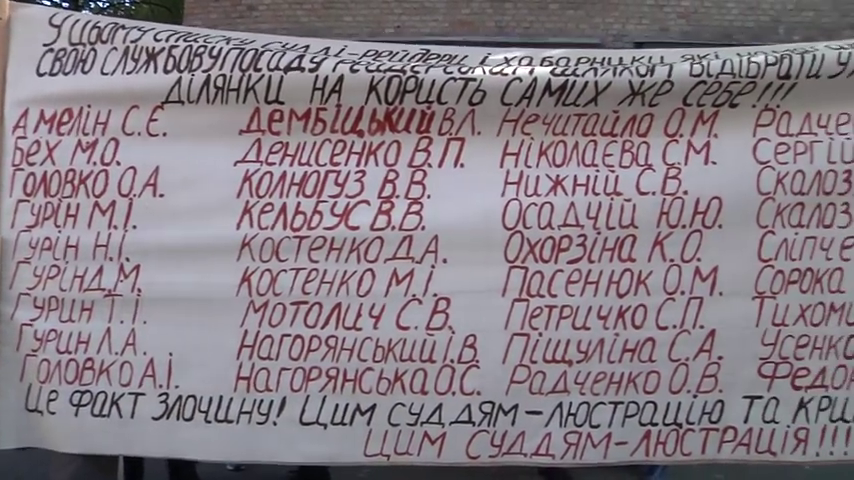 У цьому списку судді-рейдери і хабарники, які
СВОЮ СЛУЖБОВУ ПОСАДУ РЕЙДЕРСЬКИМ ШЛЯХОМ ВІДІБРАТИ У
ДІЛЯНКИ НА КОРИСТЬ САМИХ ЖЕ СЕБЕ!!!
АМЕЛІН С.Є. ДЕМБІЦЬКИЙ В.Л. НЕЧИТАЙЛО О.М. РАДЧЕ
БЕХ М.О. ДЕНИСЕНКО В.П. НІКОЛАЄВА С.М. СЕРГІЙ
ГОЛОВКО О.А. КОЛНОГУЗ В.В. НИЖНІЙ С.В. СКАЛОЗ
ГУРІН М.І. КЕЛЬБУС В.В. ОСАДЧІЙ Ю.Ю. СКАЛОЗ
ГУРІН Н.І. КОСТЕНКО Д.А. ОХОРЗІНА К.О. СЛІПЧЕ
ГУРІН Д.М. КОСТЕНКО М.І. ПАСЕНЮК О.М. СОРОКА
ГУРИН Т.І. МОТОЛИЧ С.В. ПЕТРИЧКО С.П. ТИХОМИ
ГУРИН Л.А. НАГОРЯНСЬКИЙ І.В. ПІЩУЛІНА С.А. УСЕНКО
ГОЛОВКО А.І. НАГОРЯНСЬКА О.С. РАДЧЕНКО О.В. ФЕДО
ЦЕ ФАКТ ЗЛОЧИНУ! ЦИМ СУДДЯМ-ЛЮСТРАЦІЮ ТА КРИ
ЦИМ СУДДЯМ-ЛЮСТРАЦІЯ!!!